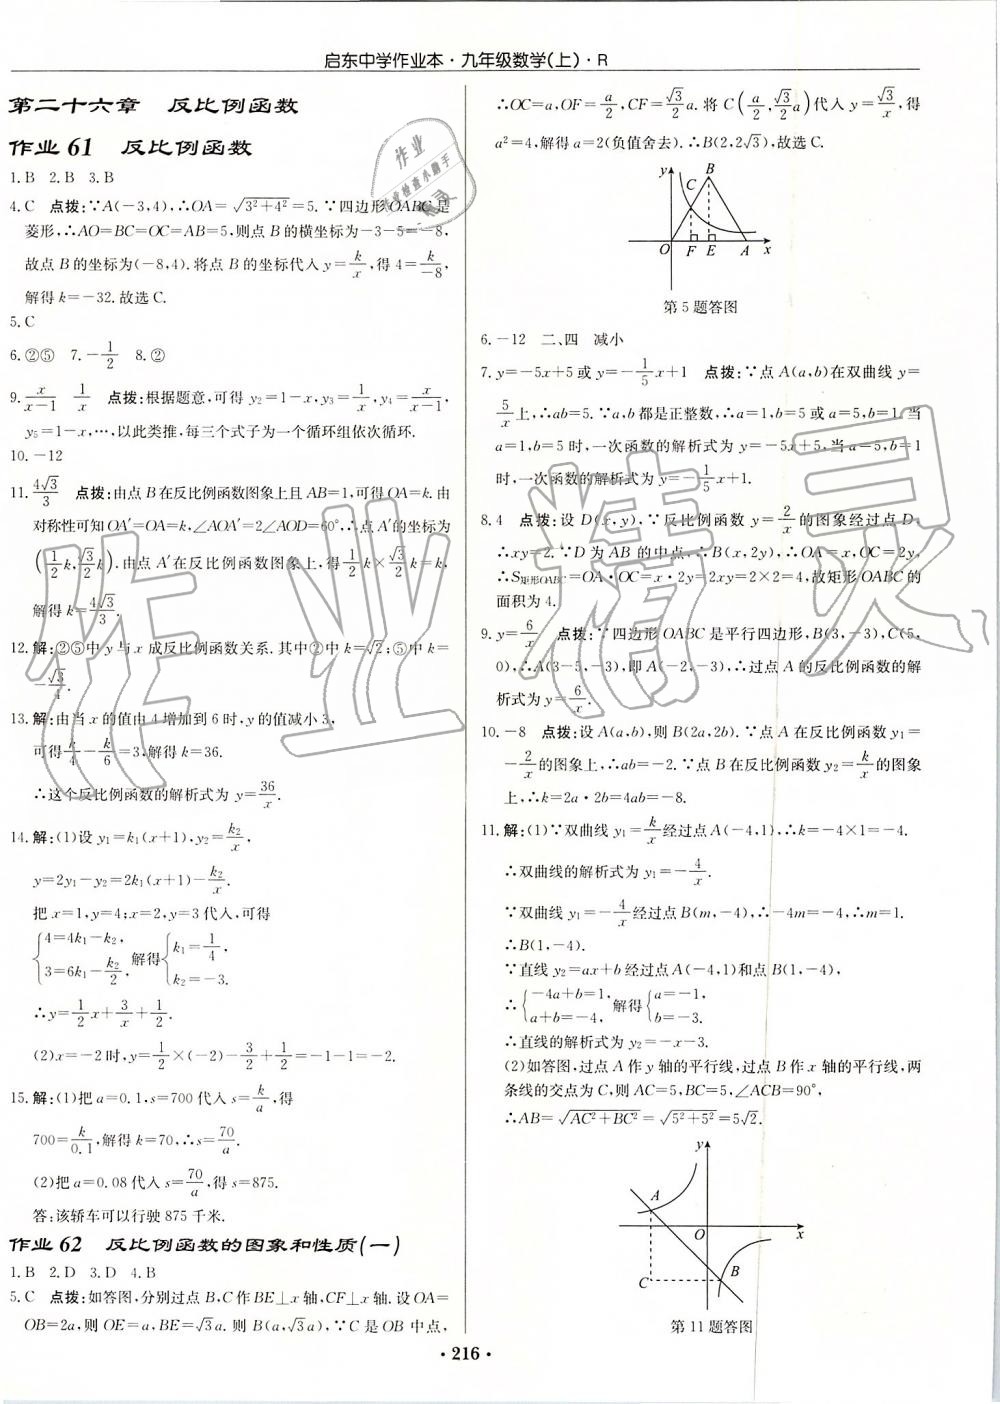 启东中学作业本·九年级数学(上)·R
第二十六章 反比例函数
作业 61 反比例函数
1.B 2.B 3.B
4.C 点拨:∵A(-3,4),∴OA=√(3²+4²)=5.∵四边形OABC是
菱形,∴AO=BC=OC=AB=5,则点B的横坐标为-3-5=-8,
故点B的坐标为(-8,4).将点B的坐标代入y=k/x,得4=k/-8,
解得k=-32.故选C.
5.C
6.②⑤ 7.-1/2 8.②
9.x/(x-1) 1/x 点拨:根据题意,可得y₂=1-x,y₃=1/x,y₄=x/(x-1),
y₅=1-x,…,以此类推,每三个式子为一个循环组依次循环.
10.-12
11.4√3/3 点拨:由点B在反比例函数图象上且AB=1,可得OA=k.由
对称性可知OA′=OA=k,∠AOA′=2∠AOD=60°,∴点A′的坐标为
(1/2k,√3/2k).由点A′在反比例函数图象上,得1/2k×√3/2k=k,
解得k=4√3/3.
12.解:②⑤中y与x成反比例函数关系.其中②中k=√2;⑤中k=
-√3/4.
13.解:由当x的值由4增加到6时,y的值减小3,
可得k/4-k/6=3,解得k=36.
∴这个反比例函数的解析式为y=36/x.
14.解:(1)设y₁=k₁(x+1),y₂=k₂/x,
y=2y₁-y₂=2k₁(x+1)-k₂/x.
把x=1,y=4;x=2,y=3代入,可得
{4=4k₁-k₂, 3=6k₁-k₂/2, 解得{k₁=1/4, k₂=-3.
∴y=1/2x+3/x+1/2.
(2)x=-2时,y=1/2×(-2)-3/2+1/2=-1-1=-2.
15.解:(1)把a=0.1,s=700代入s=k/a,得
700=k/0.1,解得k=70,∴s=70/a.
(2)把a=0.08代入s=70/a,得s=875.
答:该轿车可以行驶875千米.
作业 62 反比例函数的图象和性质(一)
1.B 2.D 3.D 4.B
5.C 点拨:如答图,分别过点B,C作BE⊥x轴,CF⊥x轴.设OA=
OB=2a,则OE=a,BE=√3a.则B(a,√3a),∵C是OB中点,
∴OC=a,OF=a/2,CF=√3/2a.将C(a/2,√3/2a)代入y=√3/x,得
a²=4,解得a=2(负值舍去).∴B(2,2√3).故选C.
y
B
C
O F E A x
第5题答图
6.-12 二、四 减小
7.y=-5x+5或y=-1/5x+1 点拨:∵点A(a,b)在双曲线y=
5/x上,∴ab=5.∵a,b都是正整数,∴a=1,b=5或a=5,b=1.当
a=1,b=5时,一次函数的解析式为y=-5x+5,当a=5,b=1
时,一次函数的解析式为y=-1/5x+1.
8.4 点拨:设D(x,y),∵反比例函数y=2/x的图象经过点D,
∴xy=2.∵D为AB的中点,∴B(x,2y),∴OA=x,OC=2y,
∴S矩形OABC=OA·OC=x·2y=2xy=2×2=4,故矩形OABC的
面积为4.
9.y=6/x 点拨:∵四边形OABC是平行四边形,B(3,-3),C(5,
0),∴A(3-5,-3),即A(-2,-3),∴过点A的反比例函数的解
析式为y=6/x.
10.-8 点拨:设A(a,b),则B(2a,2b).∵点A在反比例函数y₁=
-2/x的图象上,∴ab=-2.∵点B在反比例函数y₂=k/x的图象
上,∴k=2a·2b=4ab=-8.
11.解:(1)∵双曲线y₁=k/x经过点A(-4,1),∴k=-4×1=-4.
∴双曲线的解析式为y₁=-4/x.
∵双曲线y₁=-4/x经过点B(m,-4),∴-4m=-4,∴m=1.
∴B(1,-4).
∵直线y₂=ax+b经过点A(-4,1)和点B(1,-4),
∴{-4a+b=1, a+b=-4, 解得{a=-1, b=-3.
∴直线的解析式为y₂=-x-3.
(2)如答图,过点A作y轴的平行线,过点B作x轴的平行线,两
条线的交点为C,则AC=5,BC=5,∠ACB=90°,
∴AB=√(AC²+BC²)=√(5²+5²)=5√2.
y
A
O x
C B
第11题答图
·216·
作业精灵